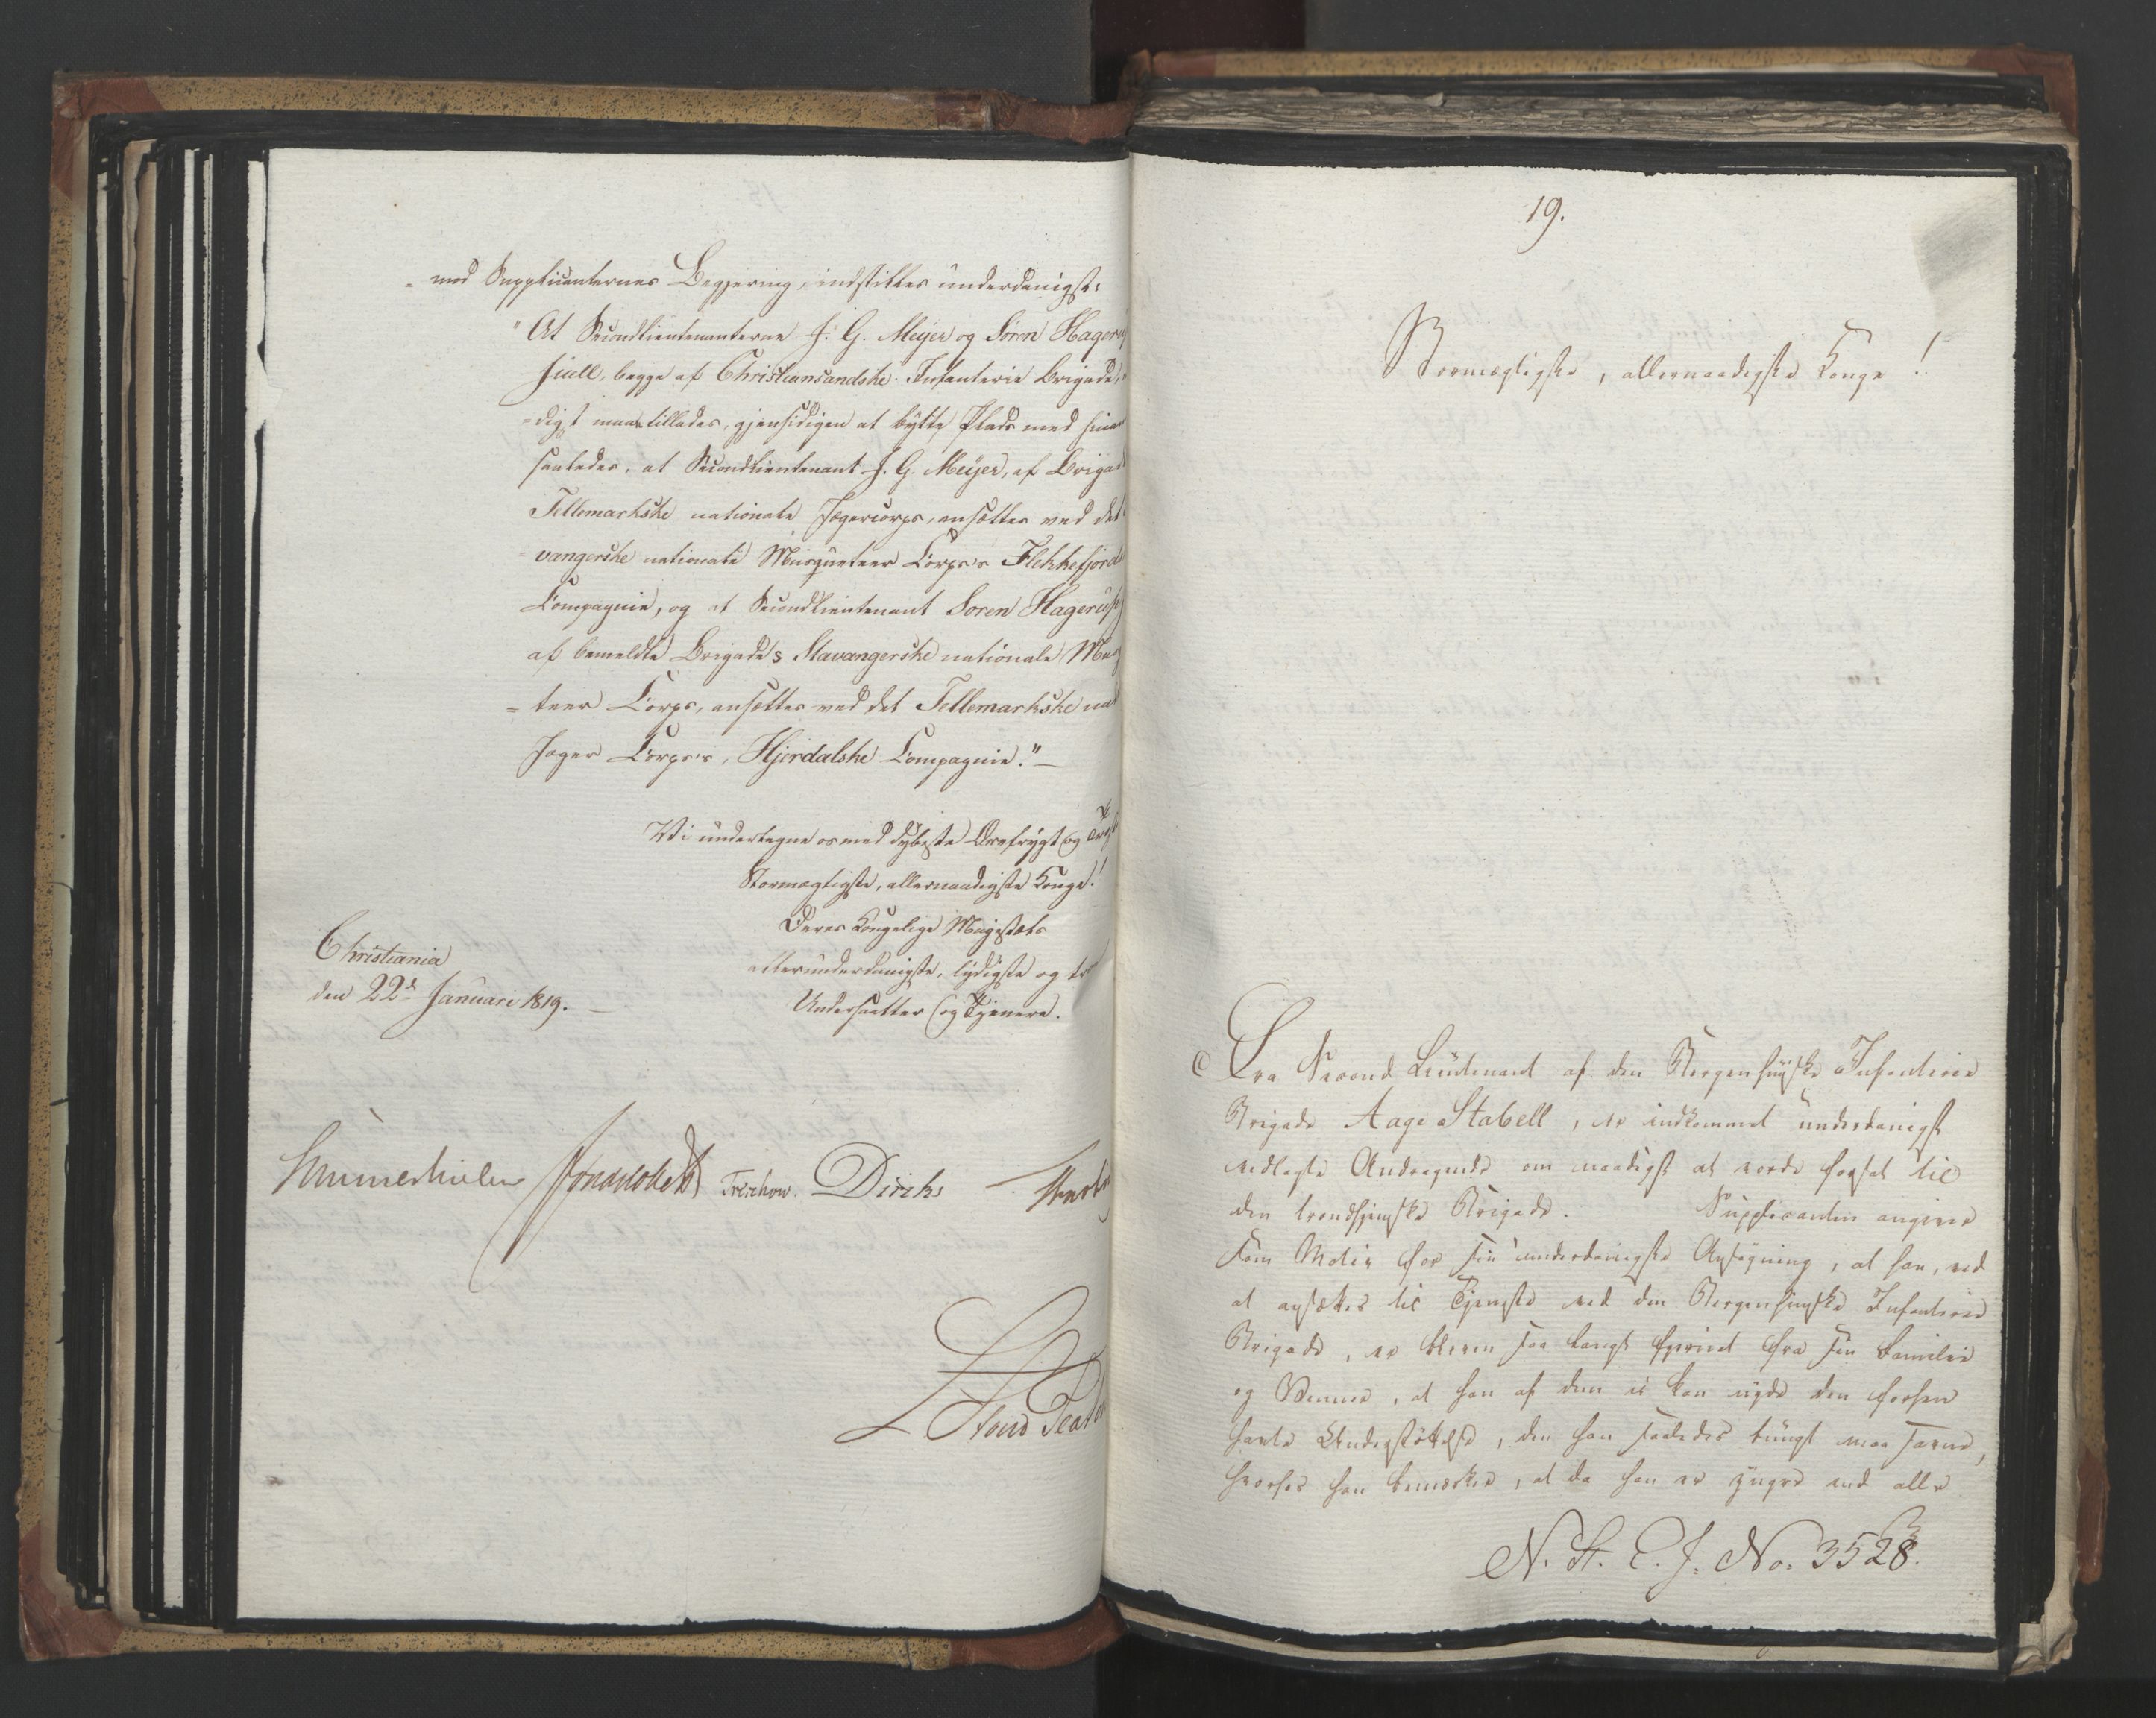 = med Supplicanternes Begjering, indstilles underdanigst:
"At Secondlieutenanterne J. G. Meyer og Sören Hageru
Juell, begge af Christiansandske Infanterie Brigade,
=digst maa tillades, gjensidigen at bytte Plads med hinan
saaledes, at Secondlieutenant J. G. Meyer, af Brigad
Tellemarkske nationale Jægercorps, ansættes ved det
=vangerske nationale Musqueteer Corps's Flekkefjords
Compagnie, og at Secondlieutenant Sören Hagerup
af bemeldte Brigades Stavangerske nationale Mus
=teer Corps, ansættes ved det Tellemarkske na
Jæger Corps's, Hjerdalske Compagnie." —
Vi undertegne os med dybeste Ærefrygt og
Stormægtigste, allernaadigste Konge!
Deres Kongelige Majestæts
allerunderdanigste, lydigste og tro
Undersaatter og Tjenere.
Christiania
den 22de Januari 1819. —
Sommerhielm Treschow. Diriks
19.
Stormægtigste, allernaadigste Konge!
Fra Second Lieutenant af den Bergenhuusske Infanterie
Brigade Aage Stabell, er indkommet underdanigst
vedlagte Andragende om naadigst at vorde forsat til
den trondhjemske Brigade. Supplicanten angiver
som Motiv for sin underdanigste Ansøgning, at han, ved
at ansættes til Tjeneste ved den Bergenhuusske Infanterie
Brigade, er bleven saa langt fjernet fra sin Familie
og Venner, at han af dem ei kan nyde den forhen
havte Understöttelse, den han saaledes tungt maa savne,
hvorhos han bemærker, at da han er yngre end alle
N. St. E. J. No. 3528.